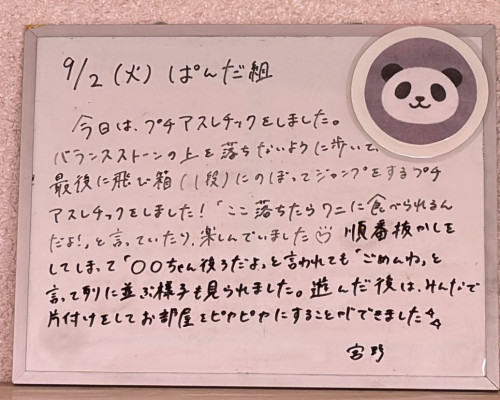 9/2(火) ぱんだ組
今日は、プチアスレチックをしました。
バランスストーンの上を落ちないように歩いて、
最後に飛び箱(1段)にのぼってジャンプをするプチ
アスレチックをしました!「ここ落ちたらワニに食べられるん
だよ!」と言っていたり、楽しんでいました☺ 順番抜かしを
してしまって「〇〇ちゃん後ろだよ」と言われても「ごめんね」と
言って列に並ぶ様子も見られました。遊んだ後は、みんなで
片付けをしてお部屋をピカピカにすることができました
宮野